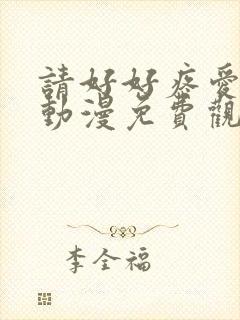 請好好疼愛
動漫免費觀
李全福